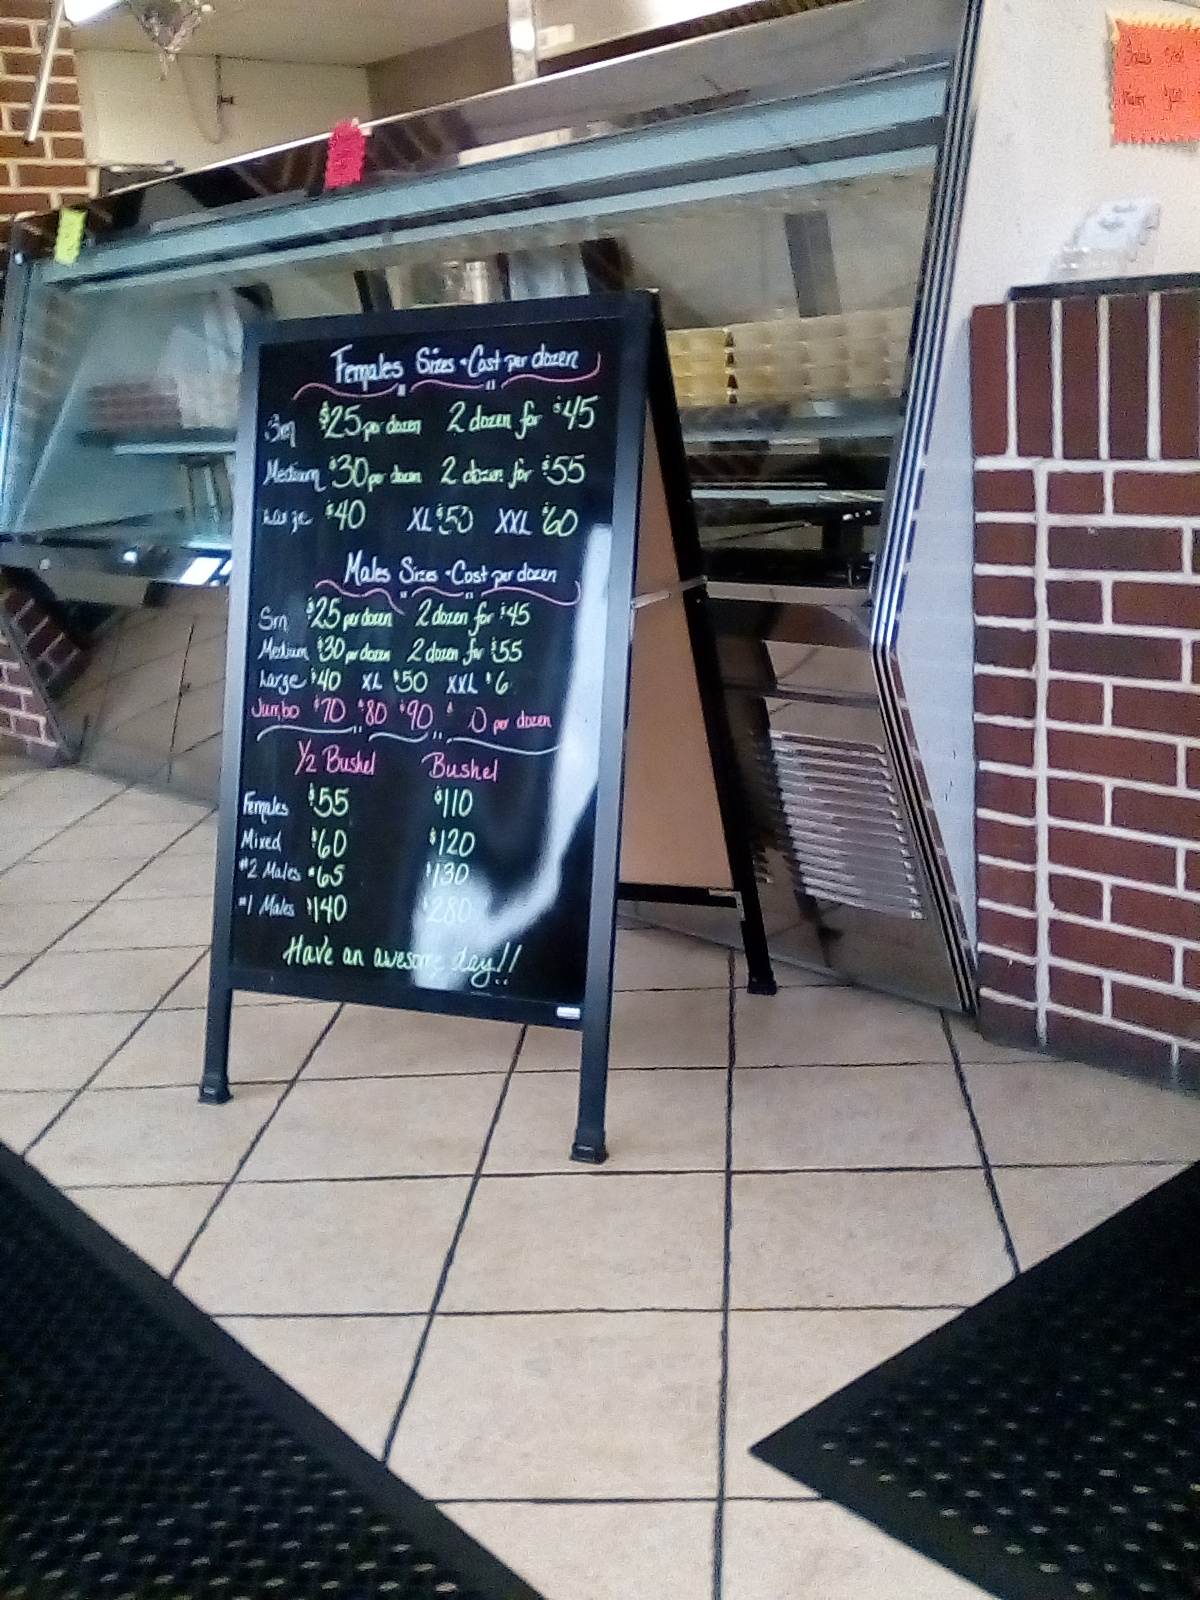 Females Sizes - Cost per dozen
Sm $25 per dozen 2 dozen for $45
Medium $30 per dozen 2 dozen for $55
Large $40 XL $50 XXL $60
Males Sizes - Cost per dozen
Sm $25 per dozen 2 dozen for $45
Medium $30 per dozen 2 dozen for $55
Large $40 XL $50 XXL $6
Jumbo $70 $80 $90 $ 0 per dozen
1/2 Bushel Bushel
Females $55 $110
Mixed $60 $120
#2 Males $65 $130
#1 Males $140 $280
Have an awesome day!!